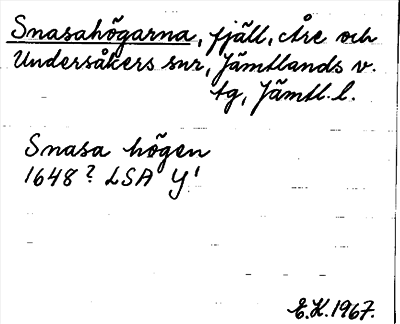 Snasahögarna, fjäll, Åre och
Undersåkers snr, Jämtlands v.
tg, Jämtl. l.
Snasa högen
1648? LSA Y¹
E.H. 1967.